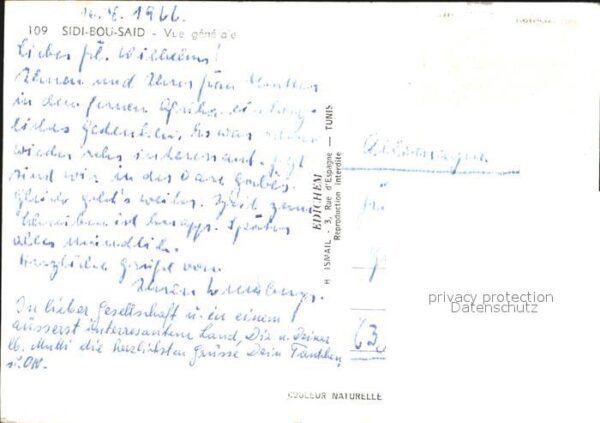 1966.
109 SIDI-BOU-SAID - Vue générale
Liebes Frl. Wilhelms!
Ihnen und Ihrer Frau Mutter
in dem fernen Afrika ein
liches Gedenken. Es war
wieder sehr interessant. Jetzt
sind wir in der Oase Gabès.
Gleich geht's weiter. Zeit zum
Schreiben ist knapp. Später
alles mündlich.
Herzliche Grüße von
Ihren
In lieber Gesellschaft u. in einem
äusserst interressanten Land, Dir u. Deiner
lb. Mutti die herzlichsten Grüsse Dein Tantchen
u. Ok.
EDICHEM
H ISMAIL - 3, Rue d'Espagne - TUNIS
Reproduction Interdite
Allemagne
63
privacy protection
Datenschutz
COULEUR NATURELLE